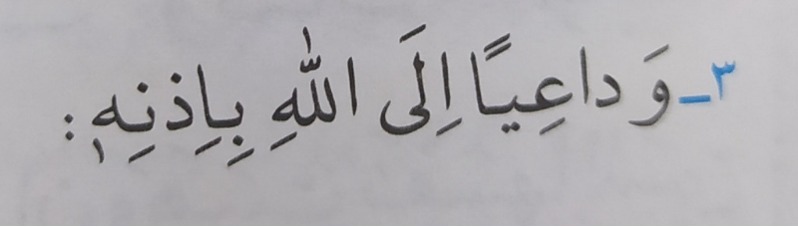 ۳ـ وَ داعِیًا اِلَی اللّٰهِ بِاِذنِهٖ: